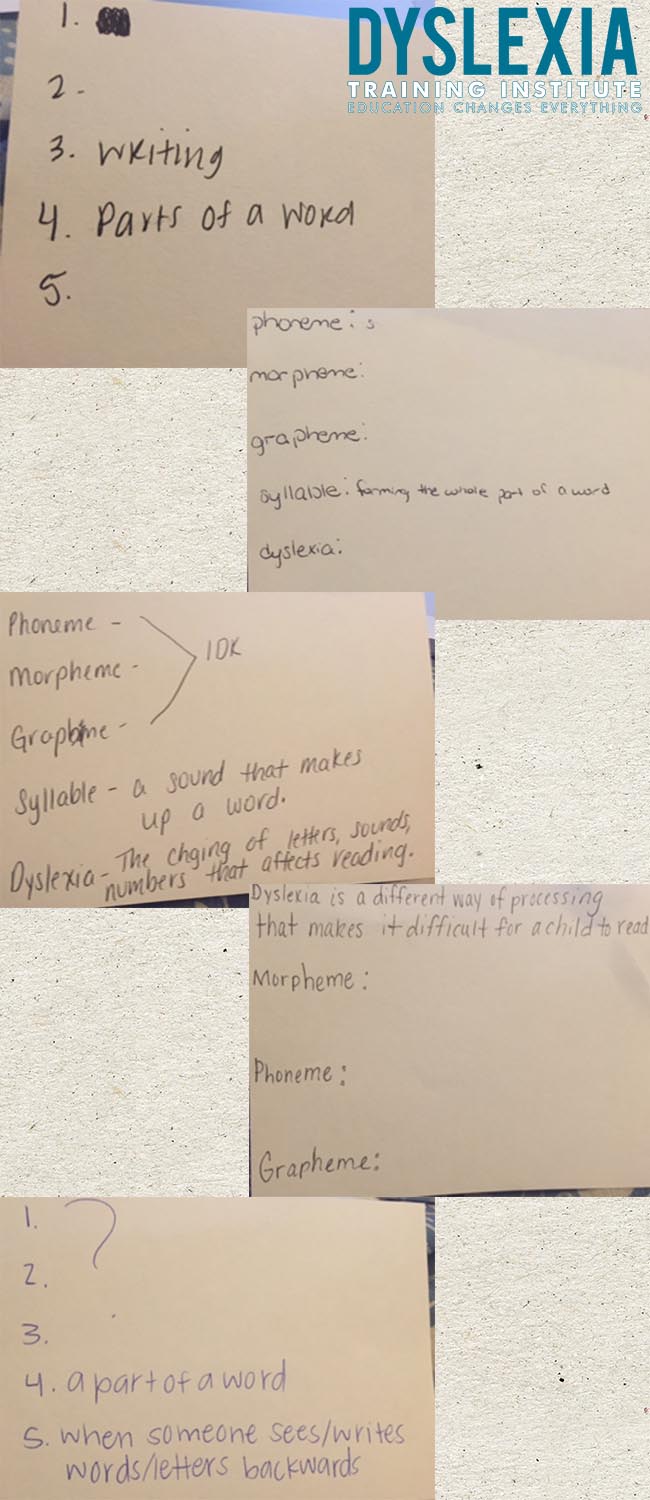 DYSLEXIA
TRAINING INSTITUTE
EDUCATION CHANGES EVERYTHING
1.
2-
3. writing
4. Parts of a word
5.
phoneme: s
morpheme:
grapheme:
syllable: forming the whole part of a word
dyslexia:
Phoneme -
Morpheme -
IDK
Grapheme -
Syllable - a sound that makes
up a word.
Dyslexia - The chging of letters, sounds,
numbers that affects reading.
Dyslexia is a different way of processing
that makes it difficult for a child to read
Morpheme:
Phoneme:
Grapheme:
1. ?
2.
3.
4. a part of a word
5. when someone sees/writes
words/letters backwards